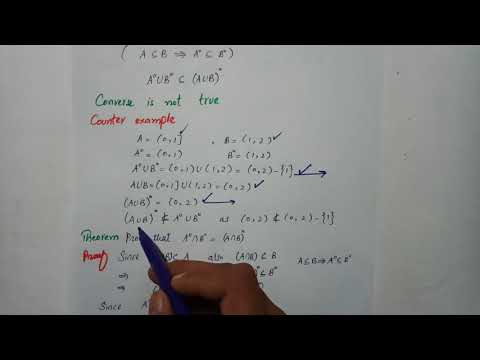 ( A ⊆ B ⇒ A° ⊆ B° )
A° ∪ B° ⊆ (A∪B)°
Converse is not true
Counter example
A = (0,1] , B = (1,2)
A° = (0,1) B° = (1,2)
A° ∪ B° = (0,1) ∪ (1,2) = (0,2) - {1}
A∪B = (0,1] ∪ (1,2) = (0,2)
(A∪B)° = (0,2)
(A∪B)° ⊄ A° ∪ B° as (0,2) ⊄ (0,2) - {1}
Theorem that A° ∩ B° = (A∩B)°
Proof Since ⊆ A also (A∩B) ⊆ B A ⊆ B ⇒ A° ⊆ B°
⇒ ⊆ B°
⇒
Since